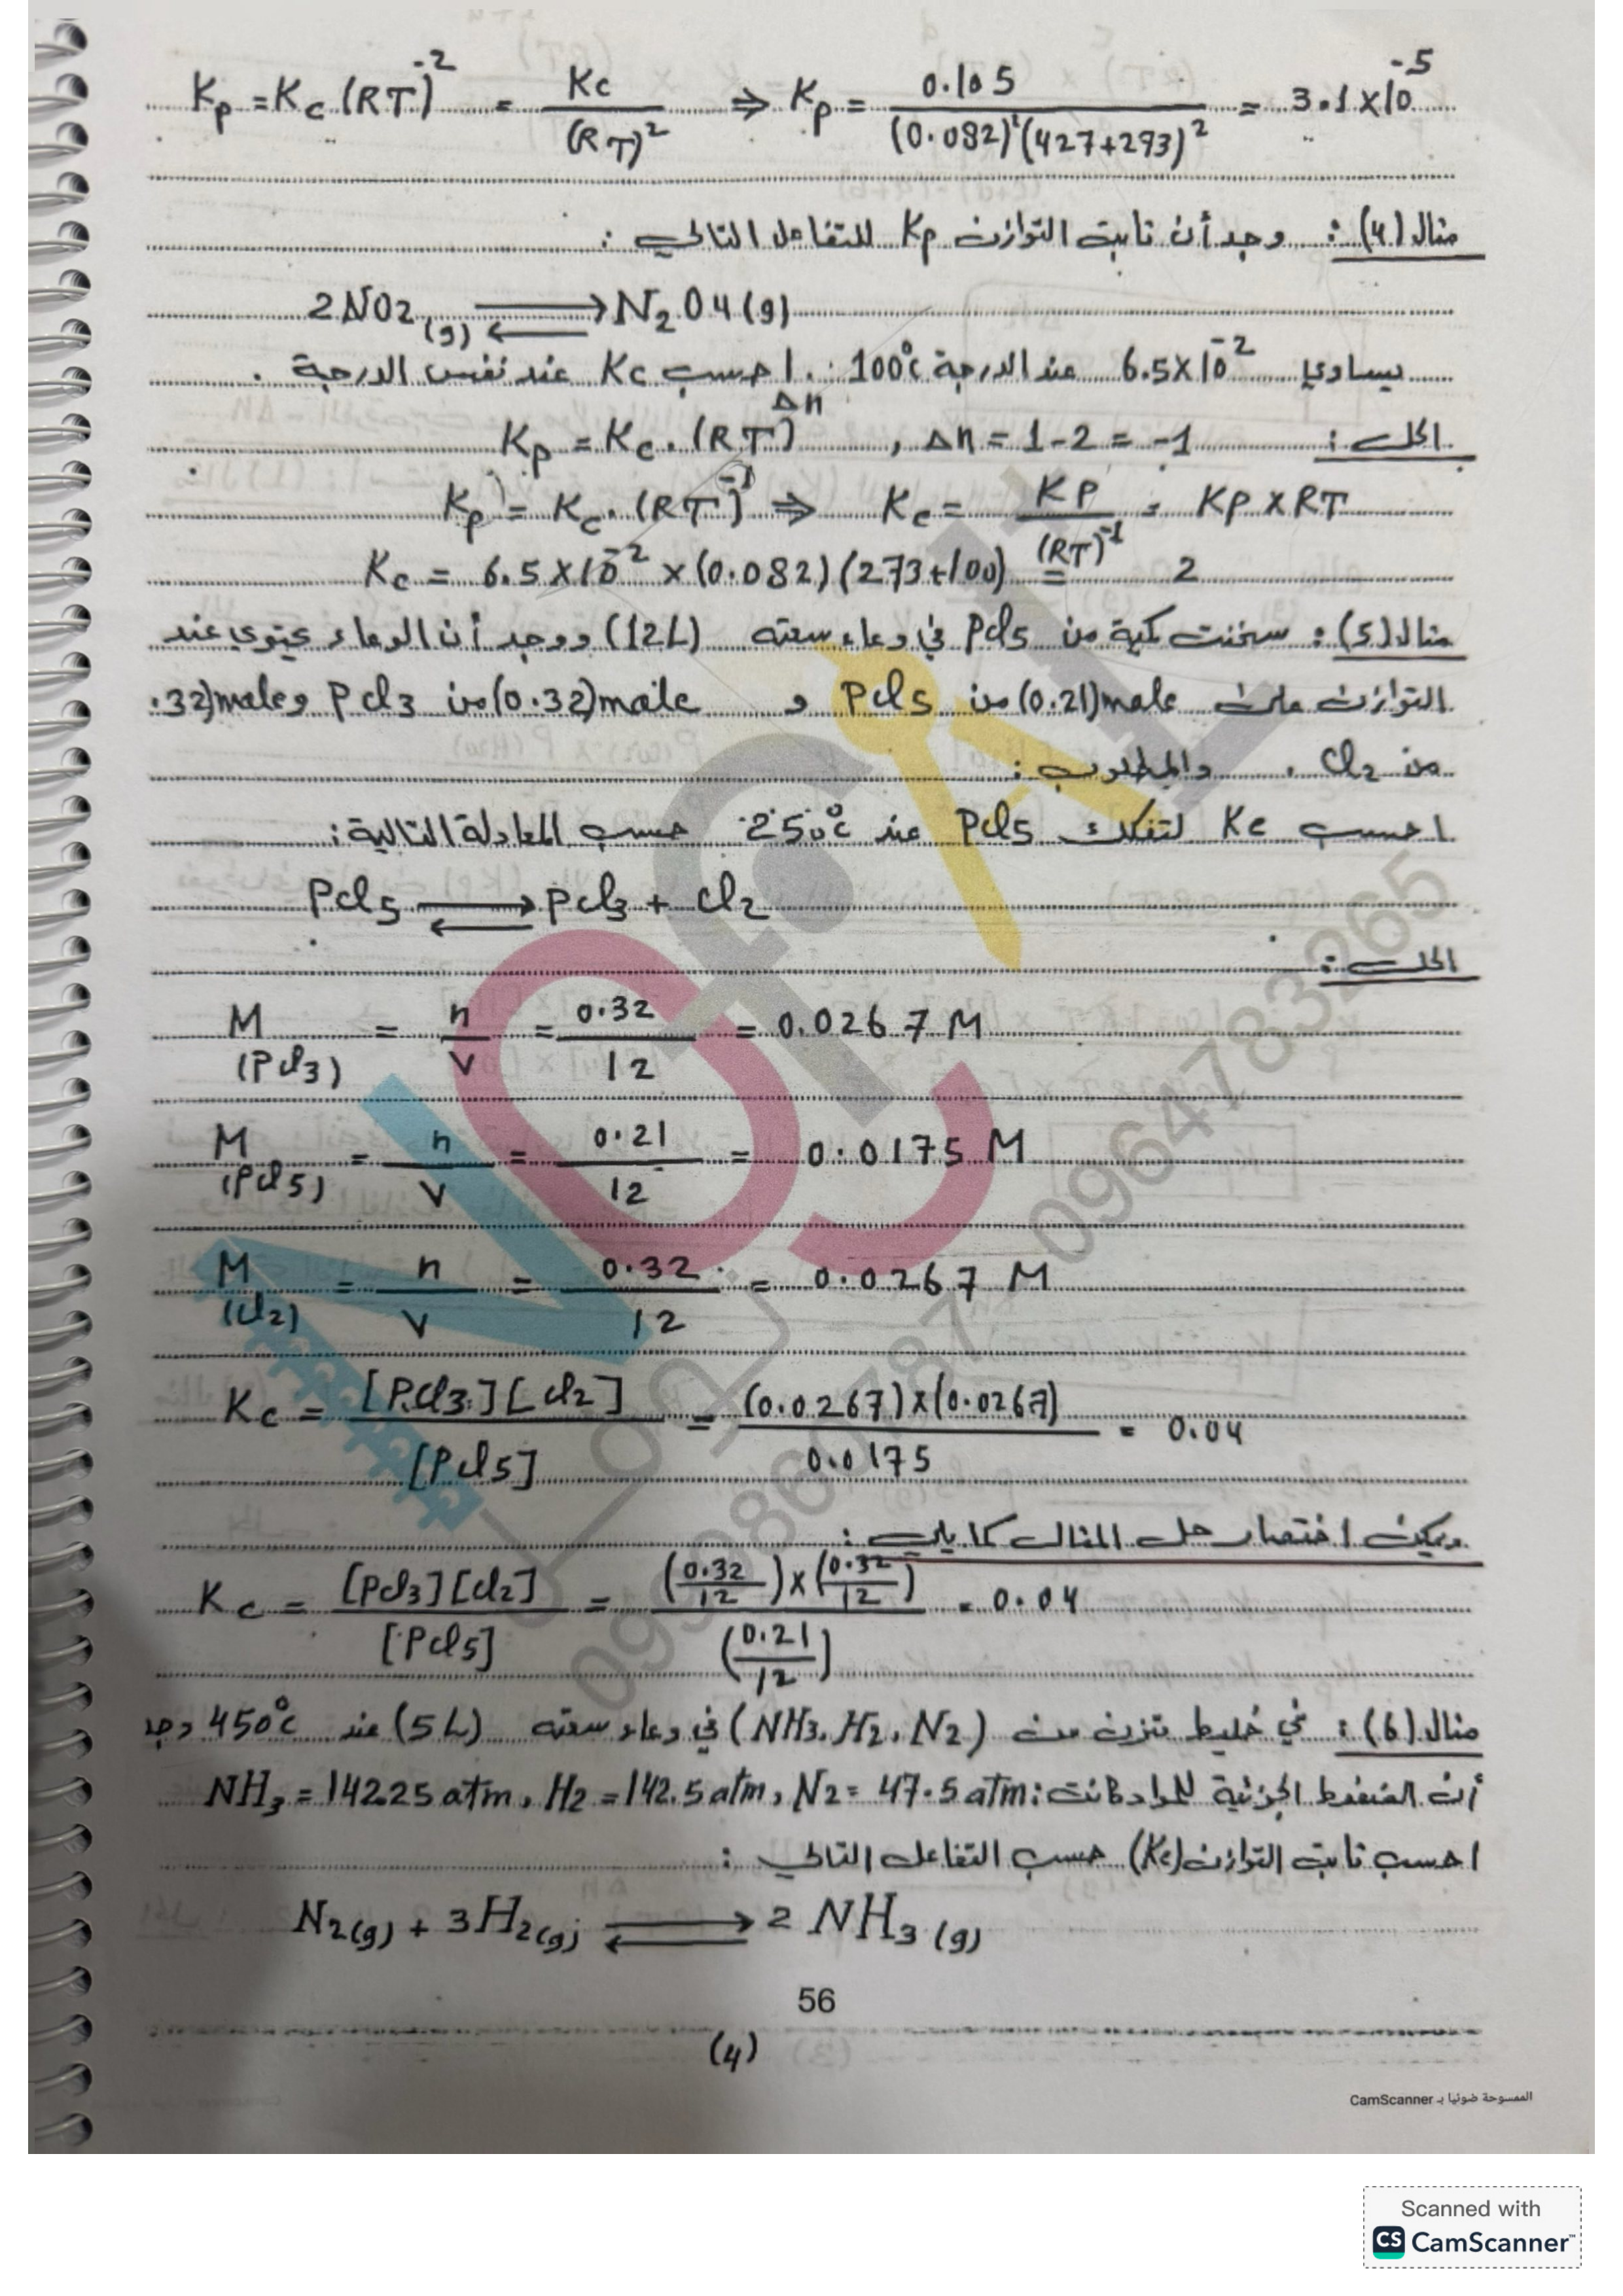 Kp = Kc (RT)^-2 = Kc / (RT)^2 ⇒ Kp = 0.105 / (0.082)^2 (427+273)^2 = 3.1 x 10^-5
مثال (4) : وجد أن ثابت التوازن Kp للتفاعل التالي :
2NO2 (g) ⇄ N2O4 (g)
يساوي 6.5 x 10^-2 عند الدرجة 100°c . احسب Kc عند نفس الدرجة .
الحل : Kp = Kc . (RT)^Δn , Δn = 1 - 2 = -1
Kp = Kc . (RT)^-1 ⇒ Kc = KP / (RT)^-1 = KP x RT
Kc = 6.5 x 10^-2 x (0.082) (273+100) = 2
مثال (5) : سخنت كمية من Pcl5 في وعاء سعته (12L) ووجد أن الوعاء يحتوي عند
التوازن على (0.21)mole من Pcl5 و (0.32)mole من Pcl3 و .32)mole
من Cl2 . والمطلوب :
احسب Kc لتفكك Pcl5 عند 250°c حسب المعادلة التالية :
Pcl5 ⇄ Pcl3 + cl2
الحل :
M (Pcl3) = n / V = 0.32 / 12 = 0.0267 M
M (Pcl5) = n / V = 0.21 / 12 = 0.0175 M
M (cl2) = n / V = 0.32 / 12 = 0.0267 M
Kc = [Pcl3] [cl2] / [Pcl5] = (0.0267) x (0.0267) / 0.0175 = 0.04
ويمكن اختصار حل المثال كما يلي :
Kc = [Pcl3] [cl2] / [Pcl5] = (0.32 / 12) x (0.32 / 12) / (0.21 / 12) = 0.04
مثال (6) : في خليط متزن من (NH3, H2, N2) في وعاء سعته (5L) عند 450°c وجد
أن الضغوط الجزئية للمواد كانت : NH3 = 142.25 atm , H2 = 142.5 atm , N2 = 47.5 atm
احسب ثابت التوازن (Kc) حسب التفاعل التالي :
N2(g) + 3H2(g) ⇄ 2 NH3 (g)
56
(4)
الممسوحة ضوئيا بـ CamScanner
Scanned with
CS CamScanner